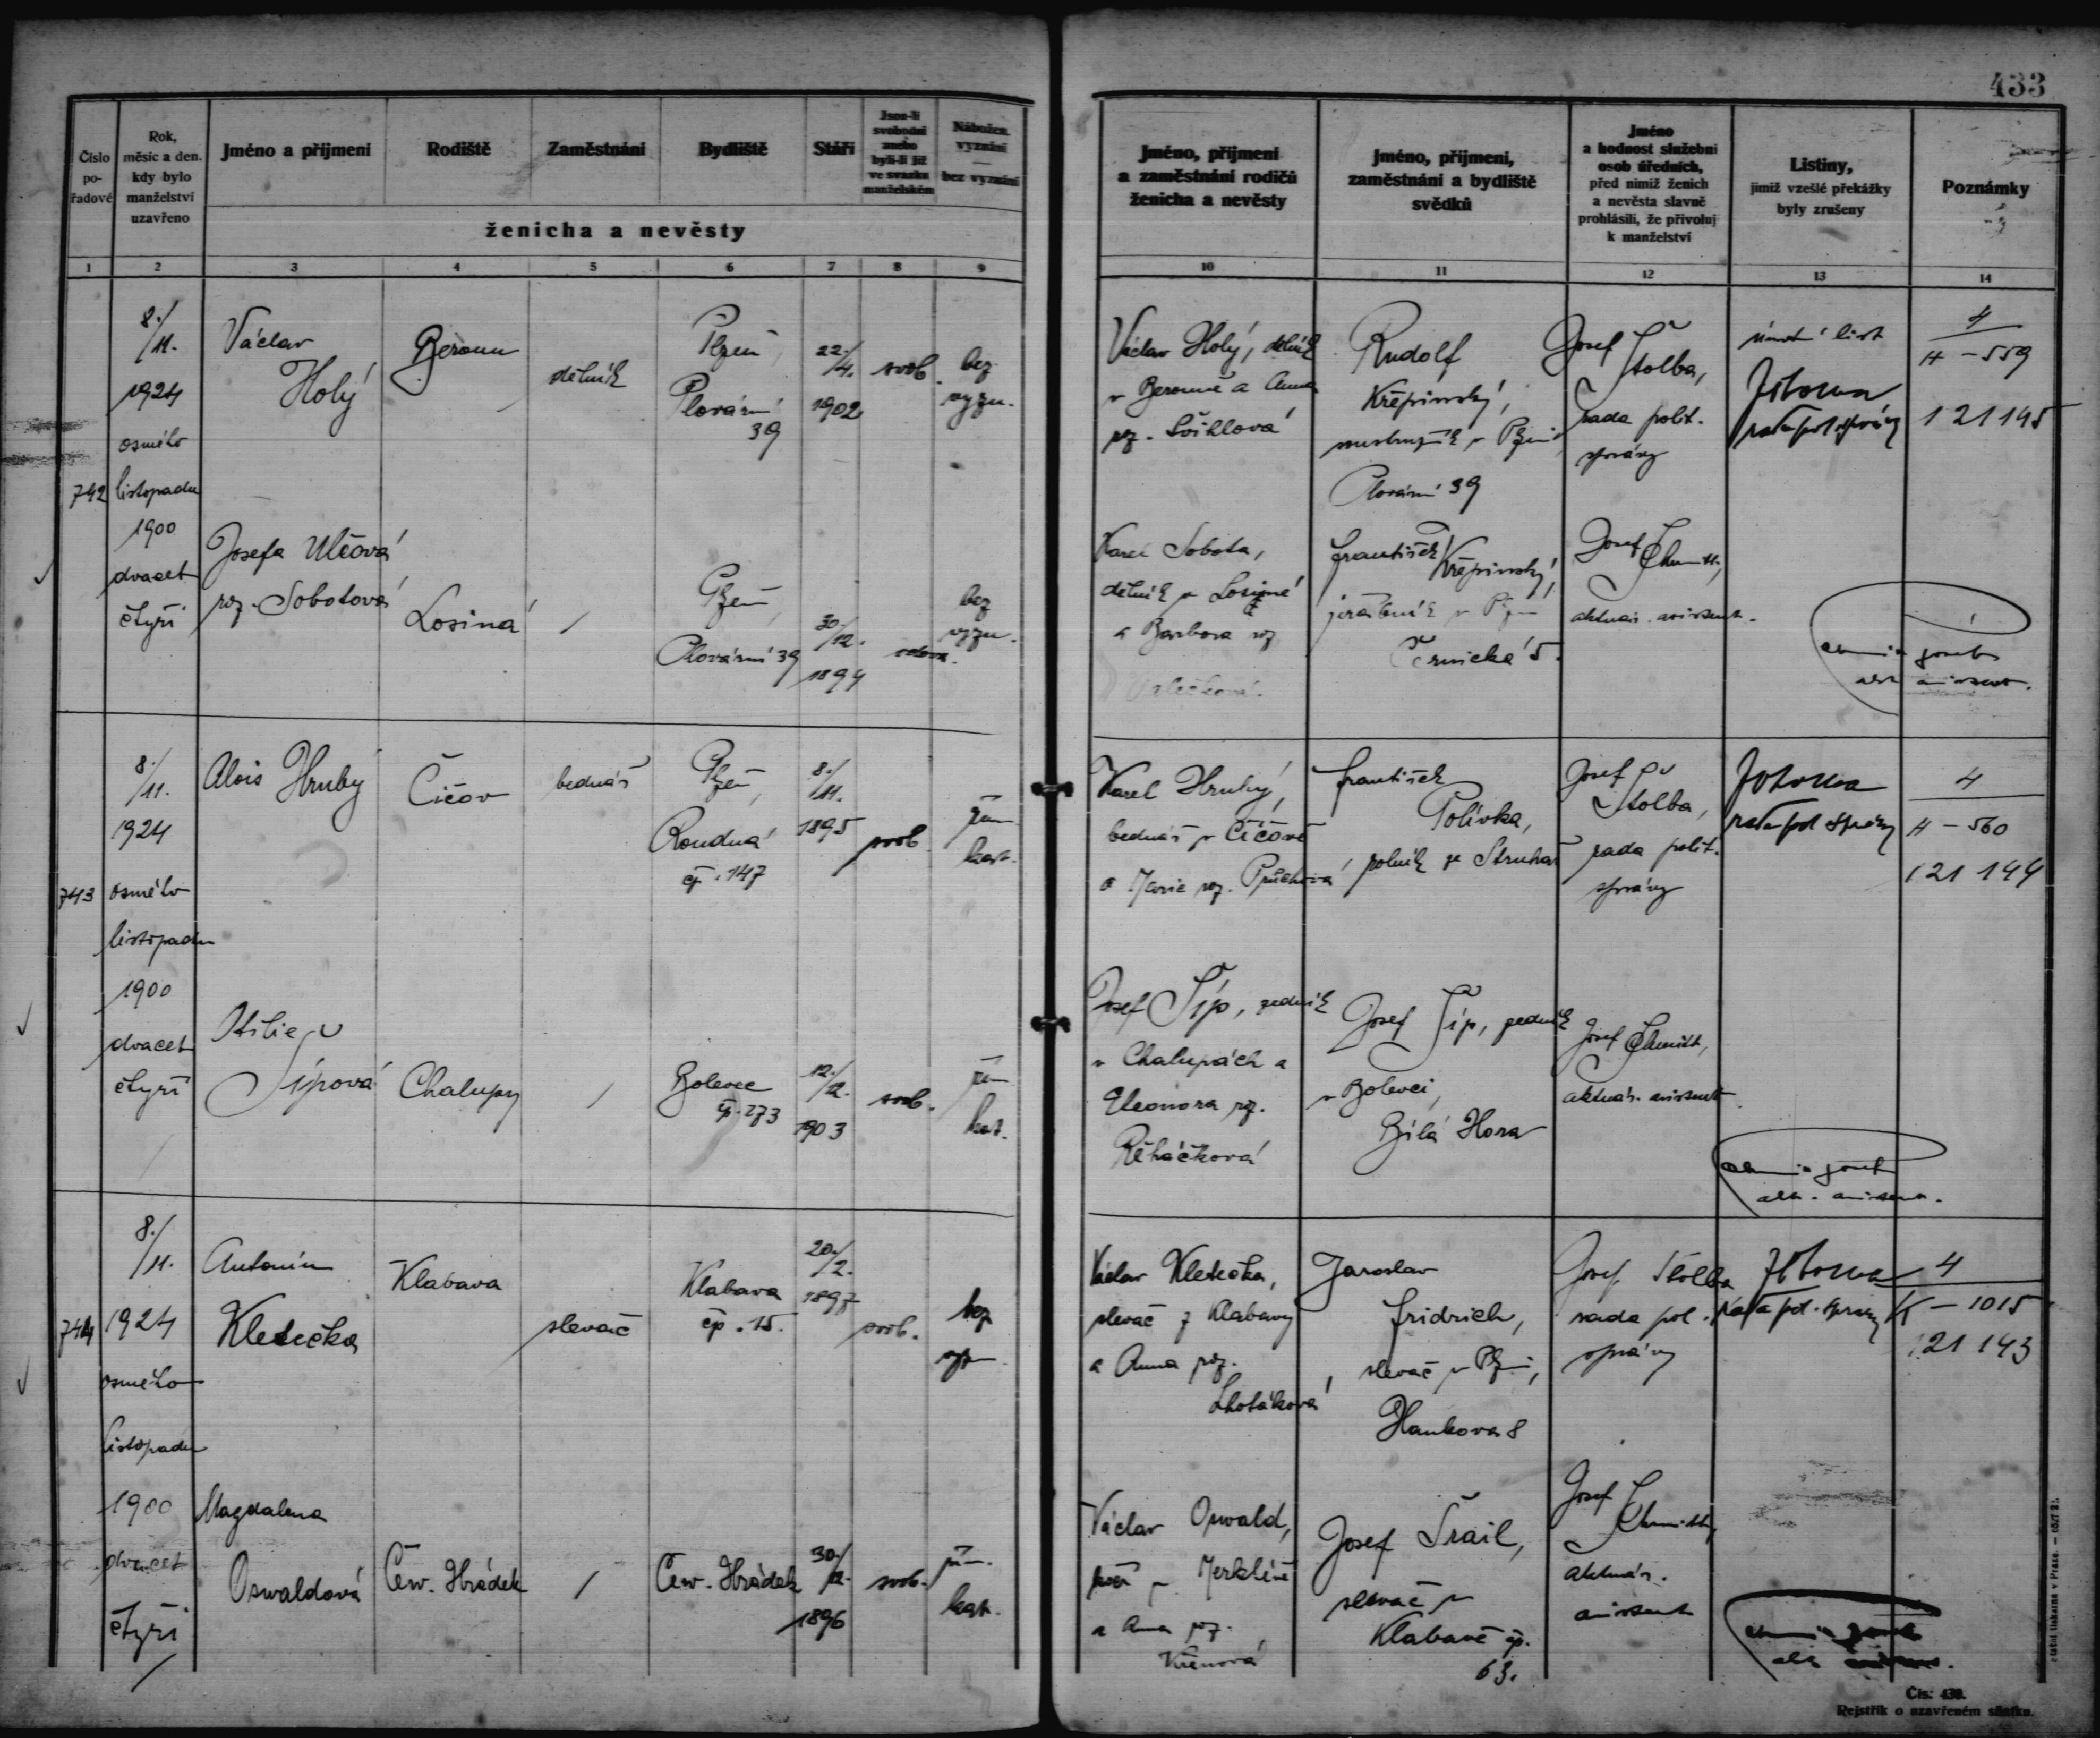 433
Číslo pořadové
Rok, měsíc a den, kdy bylo manželství uzavřeno
Jméno a příjmení
Rodiště
Zaměstnání
Bydliště
Stáří
Jsou-li svobodni anebo byli-li již ve svazku manželském
Nábožen. vyznání — bez vyznání
ženicha a nevěsty
Jméno, příjmení a zaměstnání rodičů ženicha a nevěsty
Jméno, příjmení, zaměstnání a bydliště svědků
Jméno a hodnost služební osob úředních, před nimiž ženich a nevěsta slavně prohlásili, že přivolují k manželství
Listiny, jimiž vzešlé překážky byly zrušeny
Poznámky
1 2 3 4 5 6 7 8 9 10 11 12 13 14
742
8./11.
1924
osmého
listopadu
1900
dvacet
čtyři
Václav
Holý
Beroun
dělník
Plzeň,
Plovární
39
22./4.
1902
svob.
bez
vyzn.
Václav Holý, dělník
v Berouně a Anna
roz.
Rudolf
Křepinský,
v Plzni,
Plovární 39
Josef
Štolba,
rada polit.
správy
list
4
H - 559
121145
Josefa Ulčová
roz. Sobotová
Losiná
/
Plzeň,
Plovární 39
30./12.
1894
bez
vyzn.
Karel Sobota,
dělník v Losiné
a Barbora roz.
František
Křepinský,
v Plzni
Černická 5.
Josef
aktuár. assistent.
743
8./11.
1924
osmého
listopadu
1900
dvacet
čtyři
Alois Hrubý
Čičov
bednář
Plzeň,
Roudná
čp. 147
8./11.
1895
svob.
řím.
kat.
Karel Hrubý,
bednář v Čičově
a Marie roz. Průchová
František
Polívka,
rolník ze
Josef
Štolba,
rada polit.
správy
4
H - 560
121144
Otilie
Šípová
Chalupy
/
Bolevec
čp. 273
12./12.
1903
svob.
řím.
kat.
Josef Šíp, zedník
v Chalupách a
Eleonora roz.
Řeháčková
Josef Šíp, zedník
v Bolevci,
Bílá Hora
Josef
aktuár. assistent
744
8./11.
1924
osmého
listopadu
1900
dvacet
čtyři
Antonín
Kletečka
Klabava
slevač
Klabava
čp. 15.
20./2.
1897
svob.
bez
vyzn.
Václav Kletečka,
slevač z Klabavy
a Anna roz.
Lhotáková
Jaroslav
Fridrich,
slevač v Plzni,
Hankova 8
Josef Štolba
rada pol.
správy
4
K - 1015
121143
Magdalena
Oswaldová
Červ. Hrádek
/
Červ. Hrádek
30./12.
1896
svob.
řím.
kat.
Václav Oswald,
v Merklíně
a Anna roz.
Josef Šrail,
slevač v
Klabavě čp.
63.
Josef
aktuár.
assistent
Čís. 430.
Rejstřík o uzavřeném sňatku.